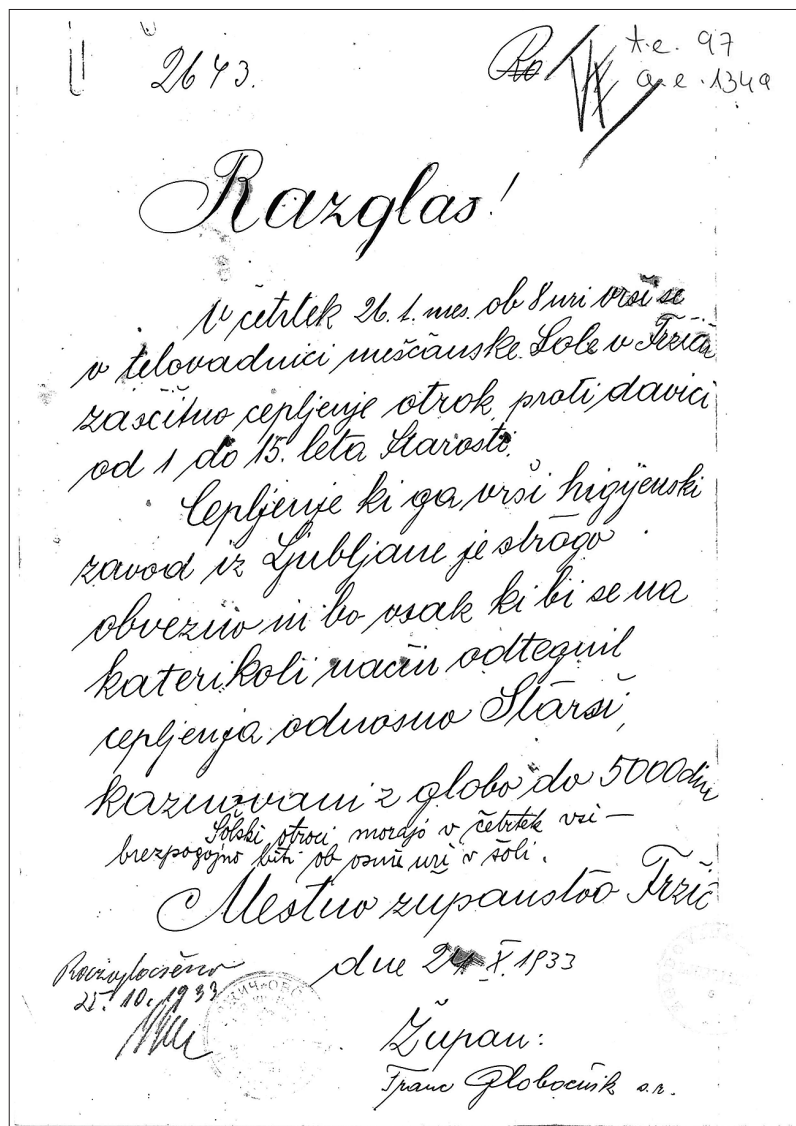 2643.
t.e. 97
a.e. 1349
Razglas!
V četrtek 26. t. mes. ob 8 uri vrši se
v telovadnici meščanske šole v Tržiču
zaščitno cepljenje otrok proti davici
od 1 do 15. leta Starosti.
Cepljenje ki ga vrši higijenski
zavod iz Ljubljane je strogo
obvezno in bo vsak ki bi se na
katerikoli način odtegnil
cepljenja odnosno Starši,
kaznovani z globo do 5000 din
Šolski otroci morajo v četrtek vsi –
brezpogojno biti ob osmi uri v šoli.
Mestno županstvo Tržič
dne 24 X. 1933
Razglašeno
25. 10. 1933
Župan:
Franc Globočnik s.r.